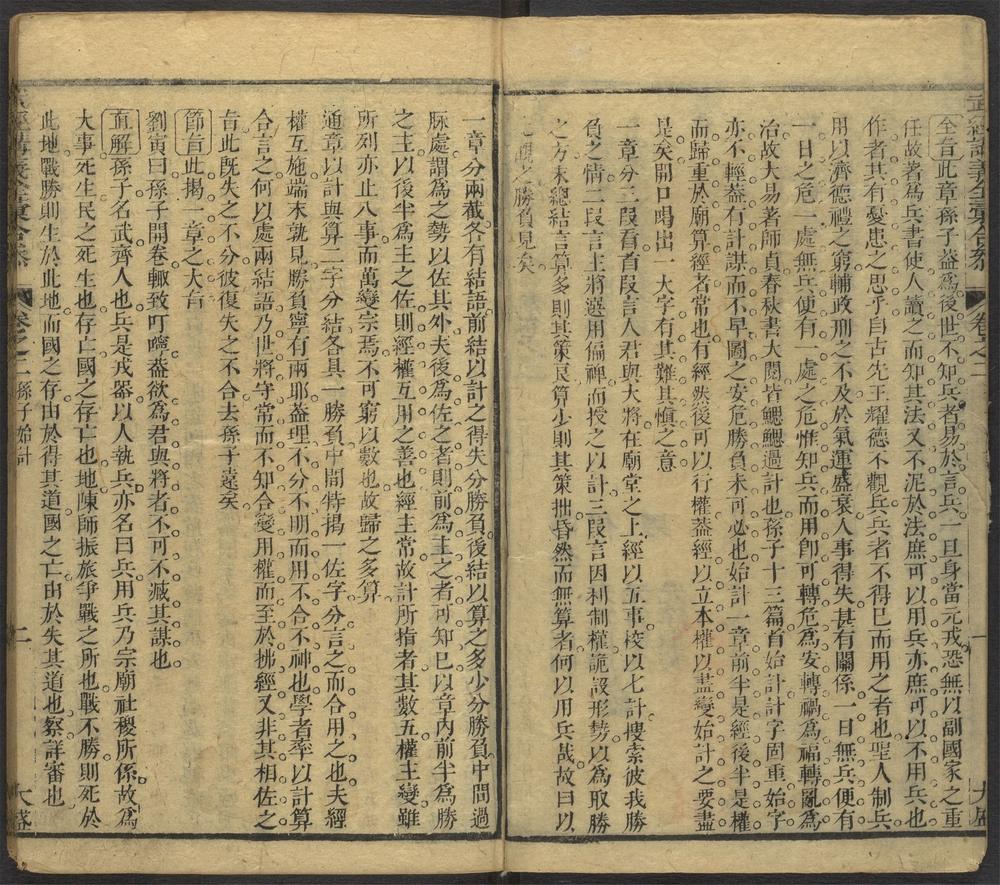 武經講義全彙合參 卷之二 一 大盛
全旨此章孫子蓋為後世不知兵者易於言兵一旦身當元戎恐無以副國家之重
任故著為兵書使人讀之而知其法又不泥於法庶可以用兵亦庶可以不用兵也
作者其有憂患之思乎自古先王耀德不觀兵兵者不得已而用之者也聖人制兵
用以濟德禮之窮輔政刑之不及於氣運盛衰人事得失甚有關係一日無兵便有
一日之危一處無兵便有一處之危惟知兵而用卽可轉危為安轉禍為福轉亂為
治故大易著師貞春秋書大閱皆鰓鰓過計也孫子十三篇首始計計字固重始字
亦不輕蓋有計謀而不早圖之安危勝負未可必也始計一章前半是經後半是權
而歸重於廟算經者常也有經然後可以行權蓋經以立本權以盡變始計之要盡
是矣開口喝出一大字有其難其慎之意
一章分三段看首段言人君與大將在廟堂之上經以五事校以七計搜索彼我勝
負之情二段言主將選用偏裨而授之以計三段言因利制權詭設形勢以為取勝
之方末總結言算多則其策良算少則其策拙昏然而無算者何以用兵哉故曰以
觀之勝負見矣
一章分兩截各有結語前結以計之得失分勝負後結以算之多少分勝負中間過
脉處謂為之勢以佐其外夫後為佐之者則前為主之者可知已以章內前半為勝
之主以後半為主之佐則經權互用之善也經主常故計所指者其數五權主變雖
所列亦止八事而萬變宗焉不可窮以數也故歸之多算
通章以計與算二字分結各具一勝負中間特揭一佐字分言之而合用之也夫經
權互施端末孰見勝負寧有兩耶蓋理不分不明而用不合不神也學者率以計算
合言之何以處兩結語乃世將守常而不知合變用權而至於拂經又非其相佐之
旨此既失之不分彼復失之不合去孫子遠矣
節旨此揭一章之大旨
劉寅曰孫子開卷輙致叮嚀蓋欲為君與將者不可不臧其謀也
直解孫子名武齊人也兵是戎器以人執兵亦名曰兵用兵乃宗廟社稷所係故為
大事死生民之死生也存亡國之存亡也地陳師振旅爭戰之所也戰不勝則死於
此地戰勝則生於此地而國之存由於得其道國之亡由於失其道也察詳審也
卷之二 孫子始計 二 大盛